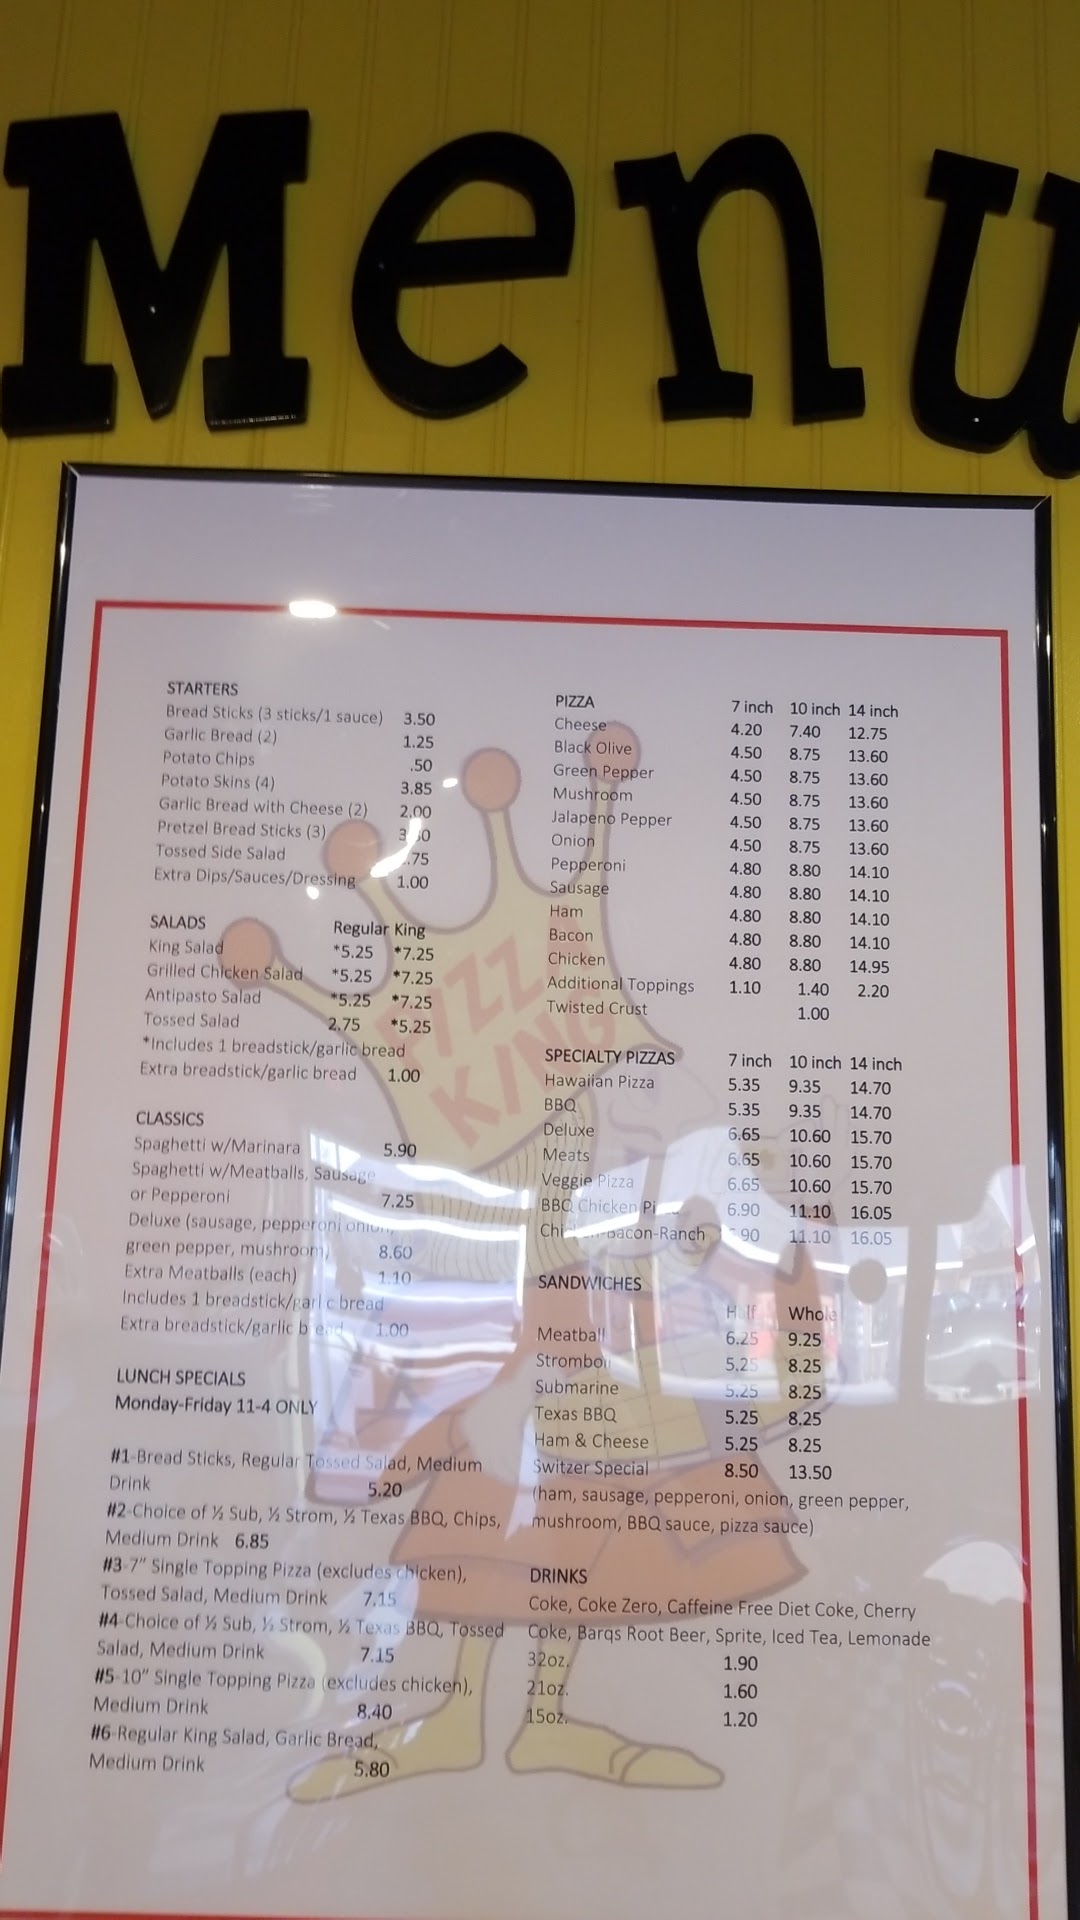 Menu
STARTERS
Bread Sticks (3 sticks/1 sauce) 3.50
Garlic Bread (2) 1.25
Potato Chips .50
Potato Skins (4) 3.85
Garlic Bread with Cheese (2) 2.00
Pretzel Bread Sticks (3)
Tossed Side Salad
Extra Dips/Sauces/Dressing 1.00
SALADS Regular King
King Salad *5.25 *7.25
Grilled Chicken Salad *5.25 *7.25
Antipasto Salad *5.25 *7.25
Tossed Salad 2.75 *5.25
*Includes 1 breadstick/garlic bread
Extra breadstick/garlic bread 1.00
CLASSICS
Spaghetti w/Marinara 5.90
Spaghetti w/Meatballs, Sausage
or Pepperoni 7.25
Deluxe (sausage, pepperoni onion,
green pepper, mushroom) 8.60
Extra Meatballs (each) 1.10
Includes 1 breadstick/garlic bread
Extra breadstick/garlic bread 1.00
LUNCH SPECIALS
Monday-Friday 11-4 ONLY
#1-Bread Sticks, Regular Tossed Salad, Medium
Drink 5.20
#2-Choice of ½ Sub, ½ Strom, ½ Texas BBQ, Chips,
Medium Drink 6.85
#3-7" Single Topping Pizza (excludes chicken),
Tossed Salad, Medium Drink 7.15
#4-Choice of ½ Sub, ½ Strom, ½ Texas BBQ, Tossed
Salad, Medium Drink 7.15
#5-10" Single Topping Pizza (excludes chicken),
Medium Drink 8.40
#6-Regular King Salad, Garlic Bread,
Medium Drink 5.80
PIZZA 7 inch 10 inch 14 inch
Cheese 4.20 7.40 12.75
Black Olive 4.50 8.75 13.60
Green Pepper 4.50 8.75 13.60
Mushroom 4.50 8.75 13.60
Jalapeno Pepper 4.50 8.75 13.60
Onion 4.50 8.75 13.60
Pepperoni 4.80 8.80 14.10
Sausage 4.80 8.80 14.10
Ham 4.80 8.80 14.10
Bacon 4.80 8.80 14.10
Chicken 4.80 8.80 14.95
Additional Toppings 1.10 1.40 2.20
Twisted Crust 1.00
SPECIALTY PIZZAS 7 inch 10 inch 14 inch
Hawaiian Pizza 5.35 9.35 14.70
BBQ 5.35 9.35 14.70
Deluxe 6.65 10.60 15.70
Meats 6.65 10.60 15.70
Veggie Pizza 6.65 10.60 15.70
BBQ Chicken Pizza 6.90 11.10 16.05
Chicken-Bacon-Ranch 11.10 16.05
SANDWICHES
Half Whole
Meatball 6.25 9.25
Stromboli 5.25 8.25
Submarine 5.25 8.25
Texas BBQ 5.25 8.25
Ham & Cheese 5.25 8.25
Switzer Special 8.50 13.50
(ham, sausage, pepperoni, onion, green pepper,
mushroom, BBQ sauce, pizza sauce)
DRINKS
Coke, Coke Zero, Caffeine Free Diet Coke, Cherry
Coke, Barqs Root Beer, Sprite, Iced Tea, Lemonade
32oz. 1.90
21oz. 1.60
15oz. 1.20
PIZZA
KING